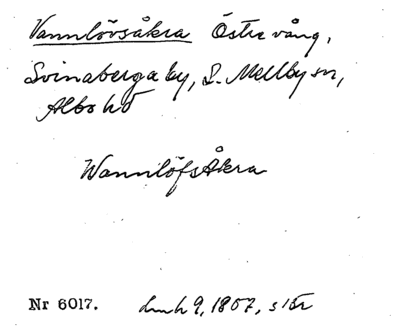 Vannlövsåkra Östre vång,
Svinaberga by, S. Mellby sn,
Albo hd
WannlöfsÅkra
Nr 6017. 9, 1807, s 10r